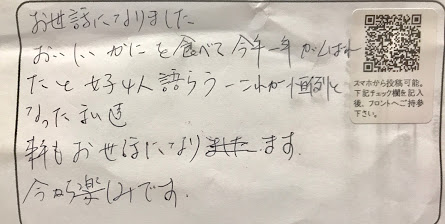 お世話になりました
おいしいがにを食べて今年一年がんばれ
たと女子4人語らう これが恒例と
なった私達
来年もお世話になります。
今から楽しみです。
スマホから投稿可能。
下記チェック欄を記入
後、フロントへご持参
下さい。